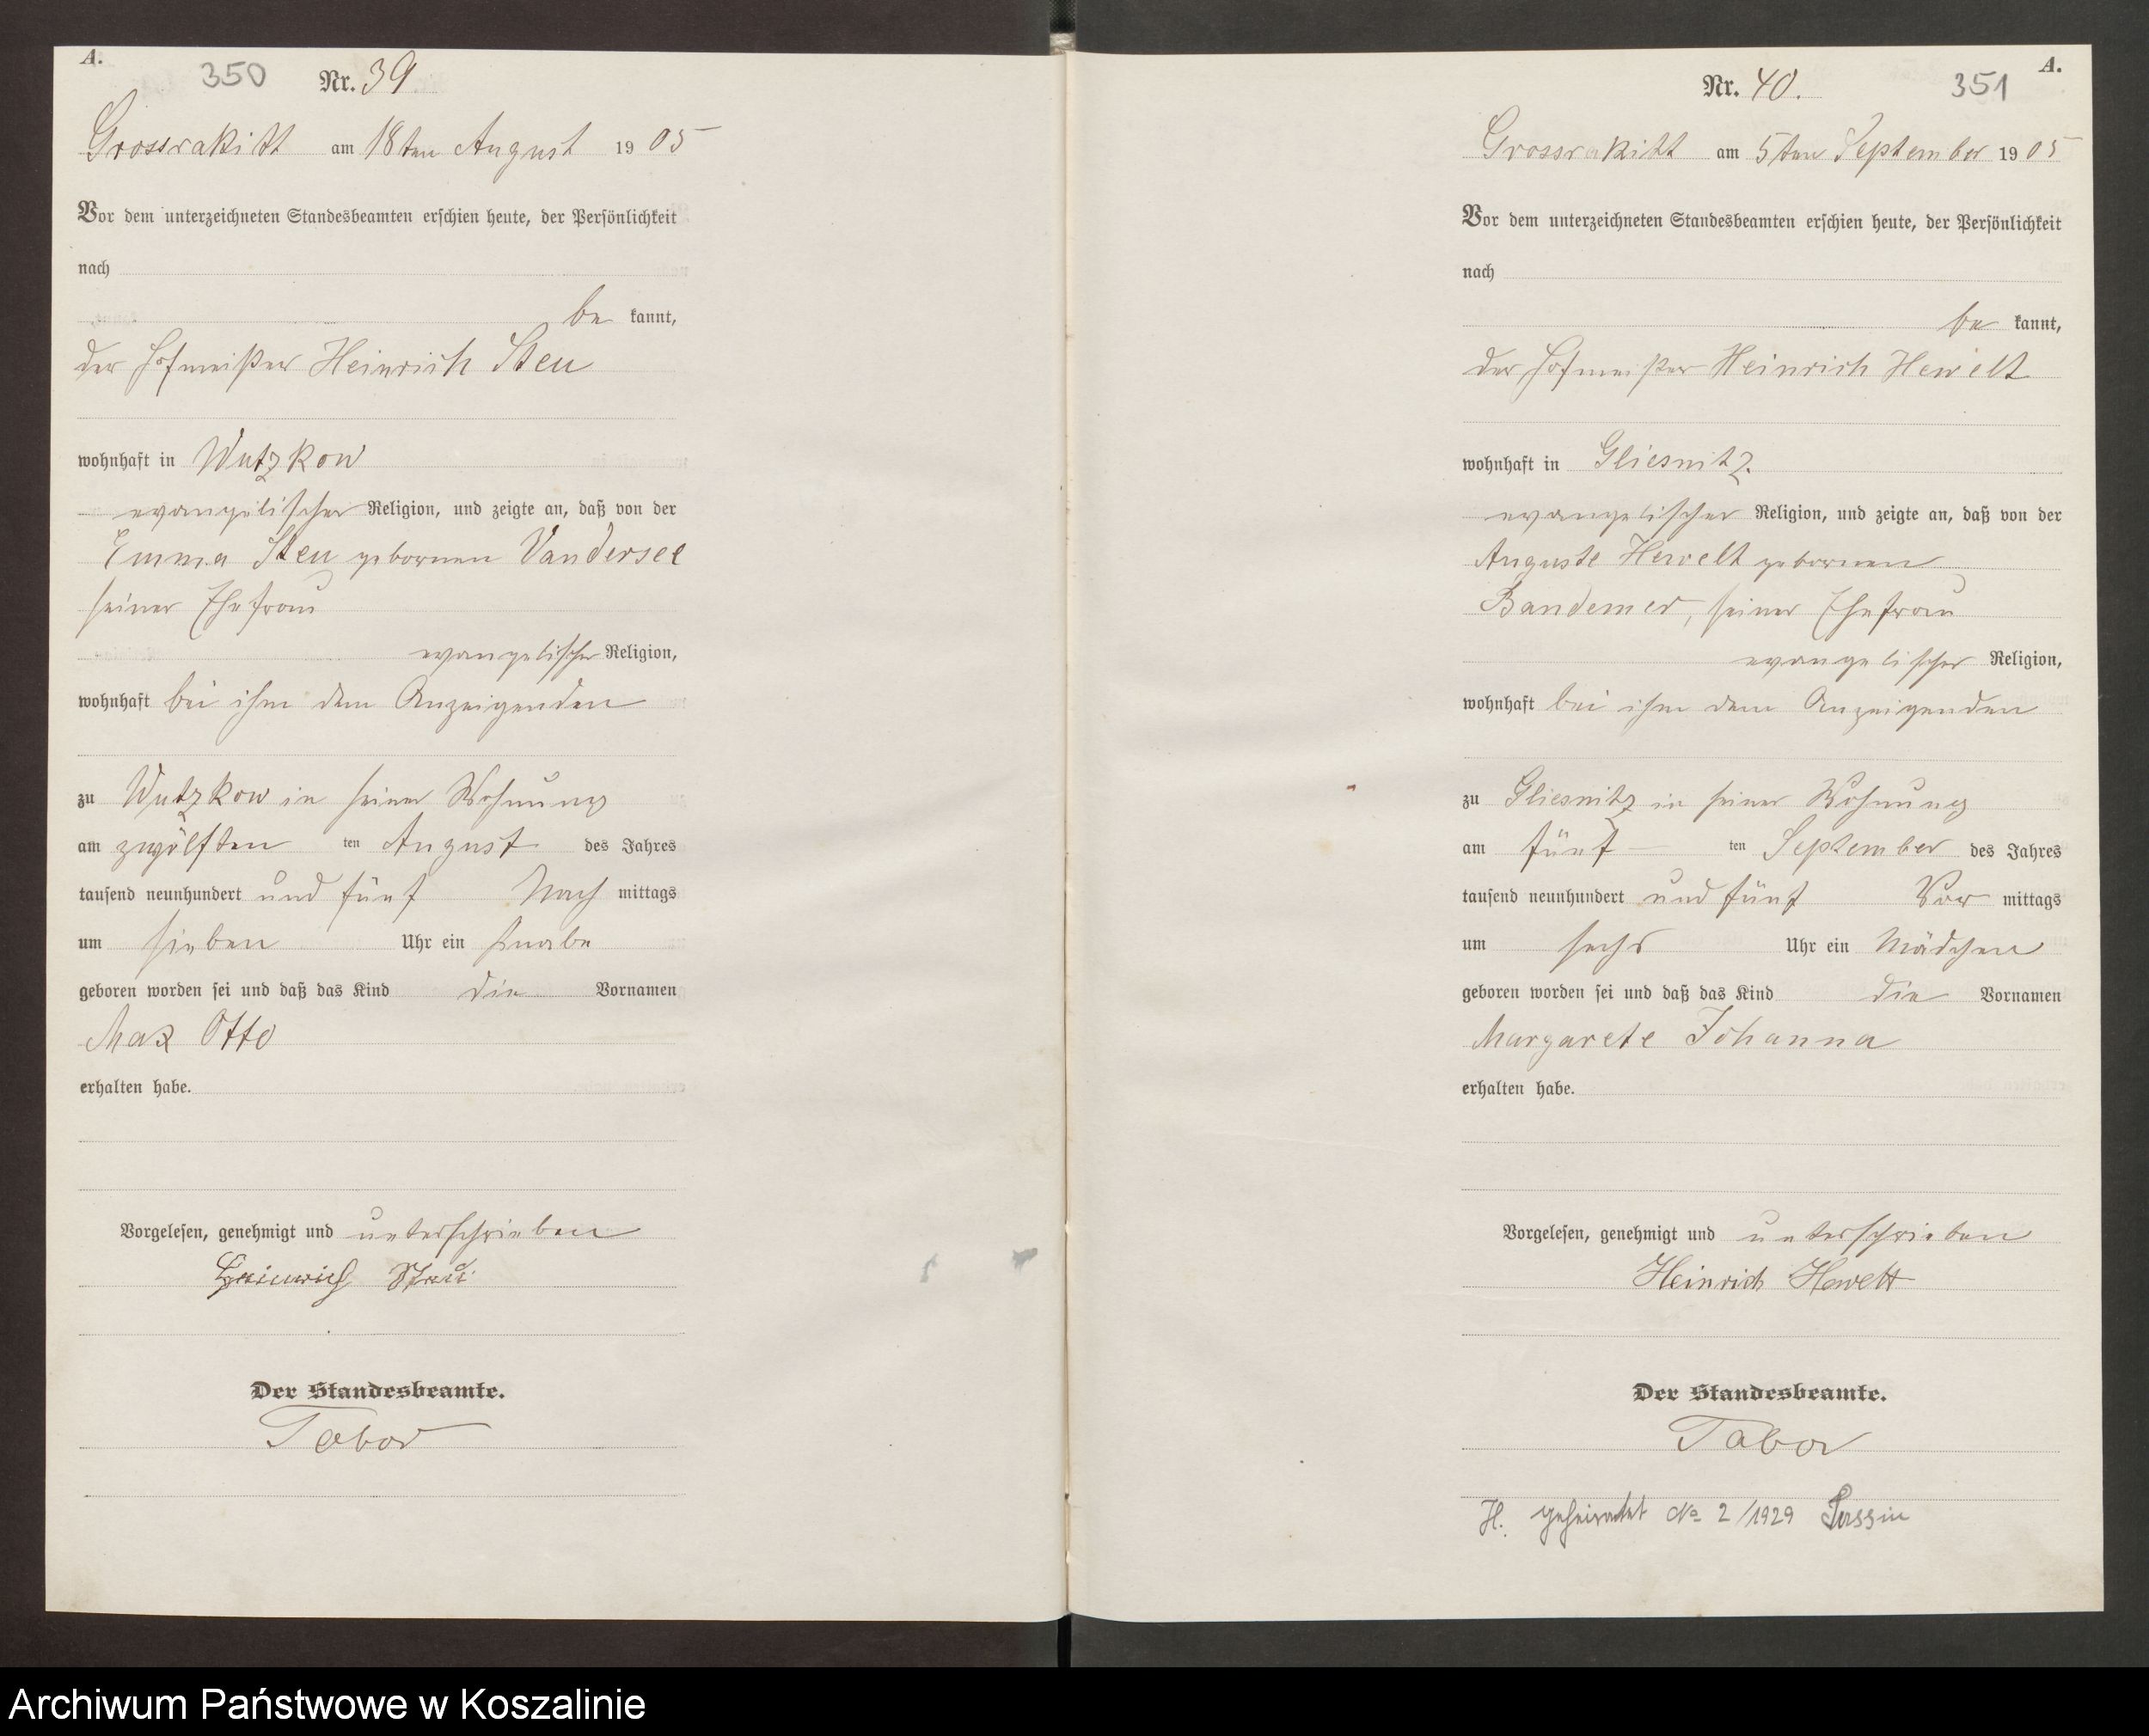 A.
350 Nr. 39.
Grossrakitt am 18ten August 1905
Vor dem unterzeichneten Standesbeamten erschien heute, der Persönlichkeit
nach
be kannt,
der Hofmeister Heinrich Steu
wohnhaft in Wutzkow
evangelischer Religion, und zeigte an, daß von der
Emma Steu gebornen Vandersee
seiner Ehefrau
evangelischer Religion,
wohnhaft bei ihm dem Anzeigenden
zu Wutzkow in seiner Wohnung
am zwölften ten August des Jahres
tausend neunhundert und fünf Nach mittags
um sieben Uhr ein Knabe
geboren worden sei und daß das Kind die Vornamen
Max Otto
erhalten habe.
Vorgelesen, genehmigt und unterschrieben
Heinrich Steu
Der Standesbeamte.
Tabor
A.
Nr. 40. 351
Grossrakitt am 5ten September 1905
Vor dem unterzeichneten Standesbeamten erschien heute, der Persönlichkeit
nach
be kannt,
der Hofmeister Heinrich Hewelt
wohnhaft in Gliesnitz.
evangelischer Religion, und zeigte an, daß von der
Auguste Hewelt gebornen
Bandemer, seiner Ehefrau
evangelischer Religion,
wohnhaft bei ihm dem Anzeigenden
zu Gliesnitz in seiner Wohnung
am fünf ten September des Jahres
tausend neunhundert und fünf Vor mittags
um sechs Uhr ein Mädchen
geboren worden sei und daß das Kind die Vornamen
Margarete Johanna
erhalten habe.
Vorgelesen, genehmigt und unterschrieben
Heinrich Hewelt
Der Standesbeamte.
Tabor
H. geheiratet No 2/1929 Sassin
Archiwum Państwowe w Koszalinie